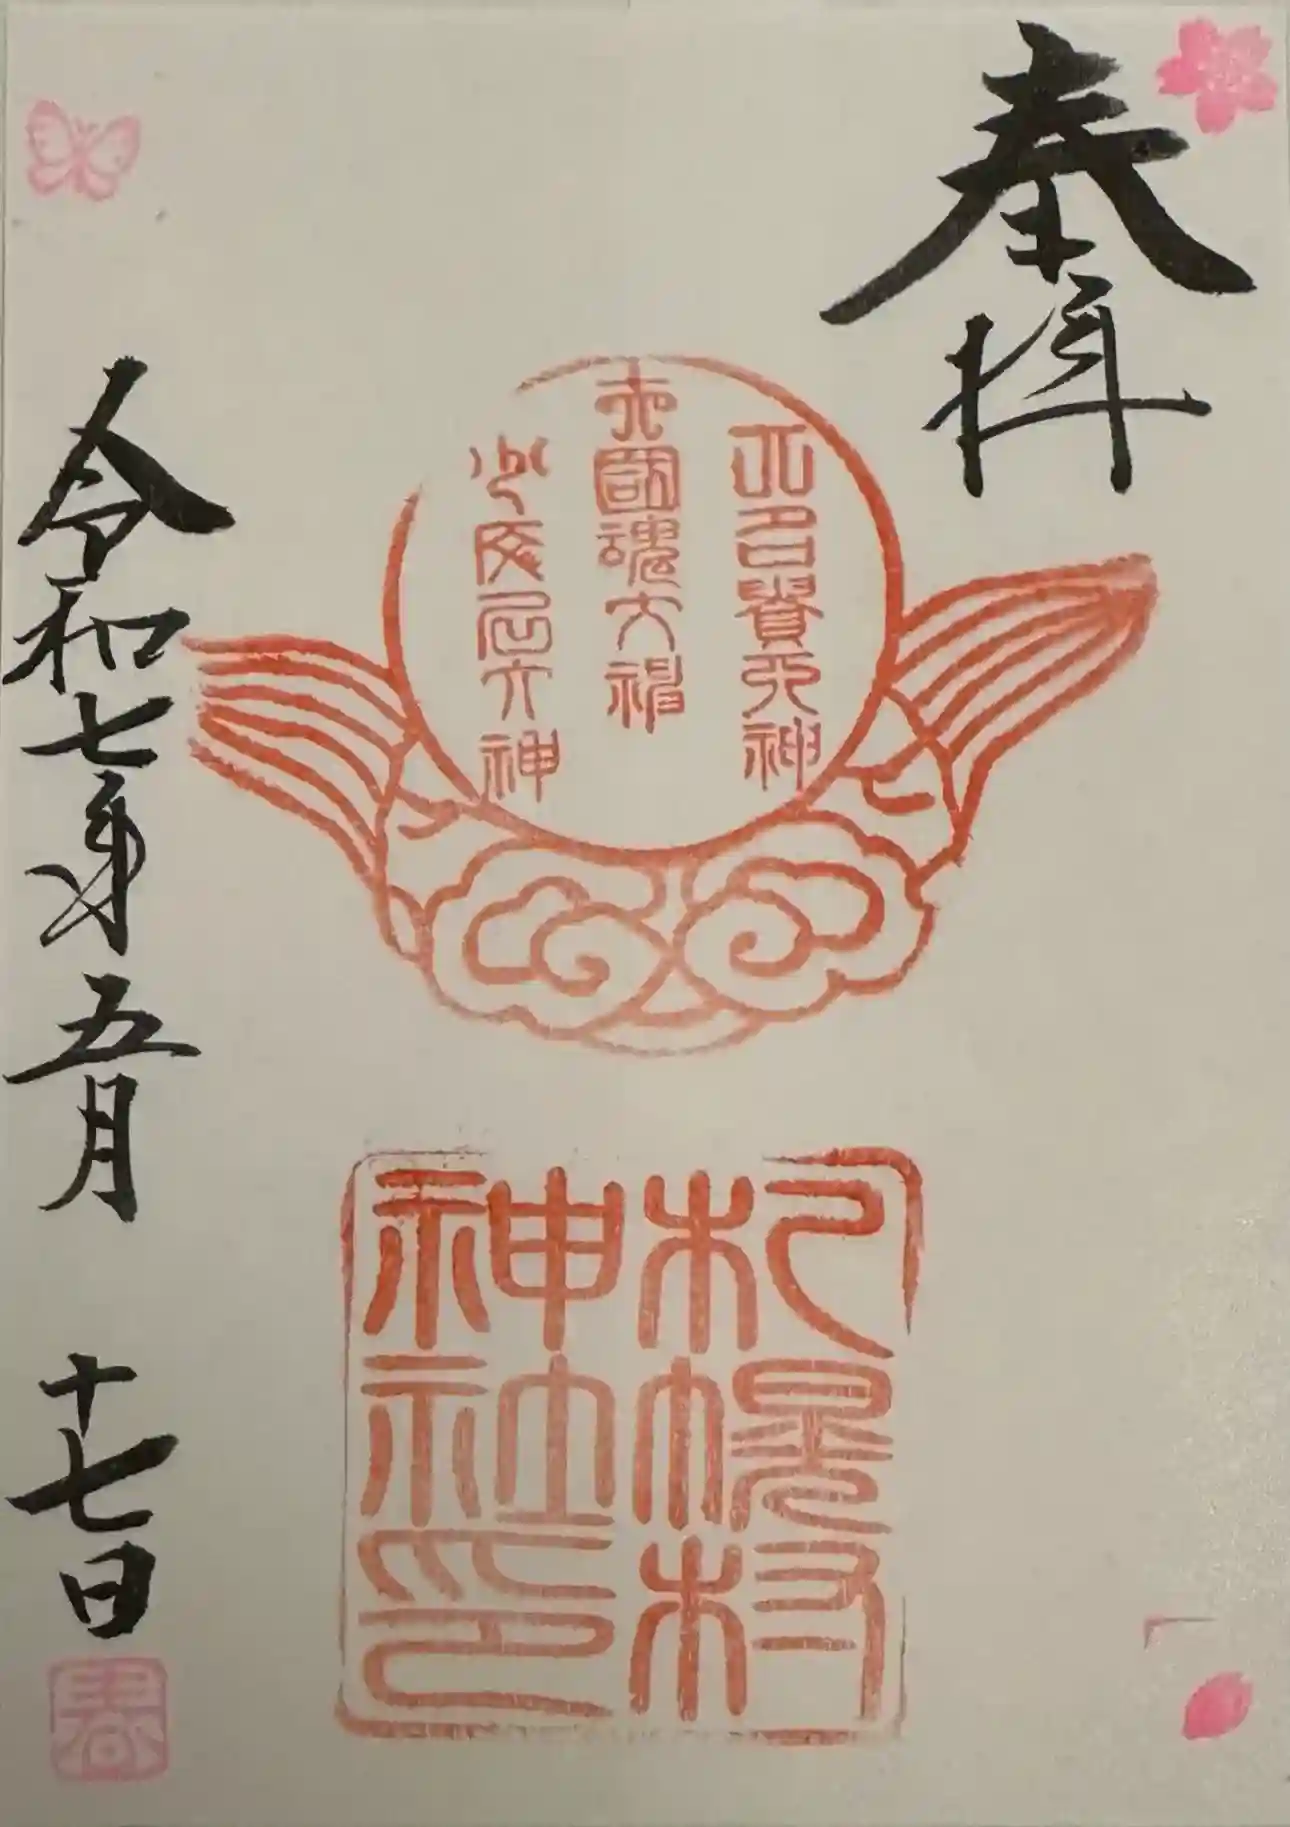 奉拝
大名貴大神
大國魂大神
少彦名大神
札幌村
神社印
令和七年五月十七日
春